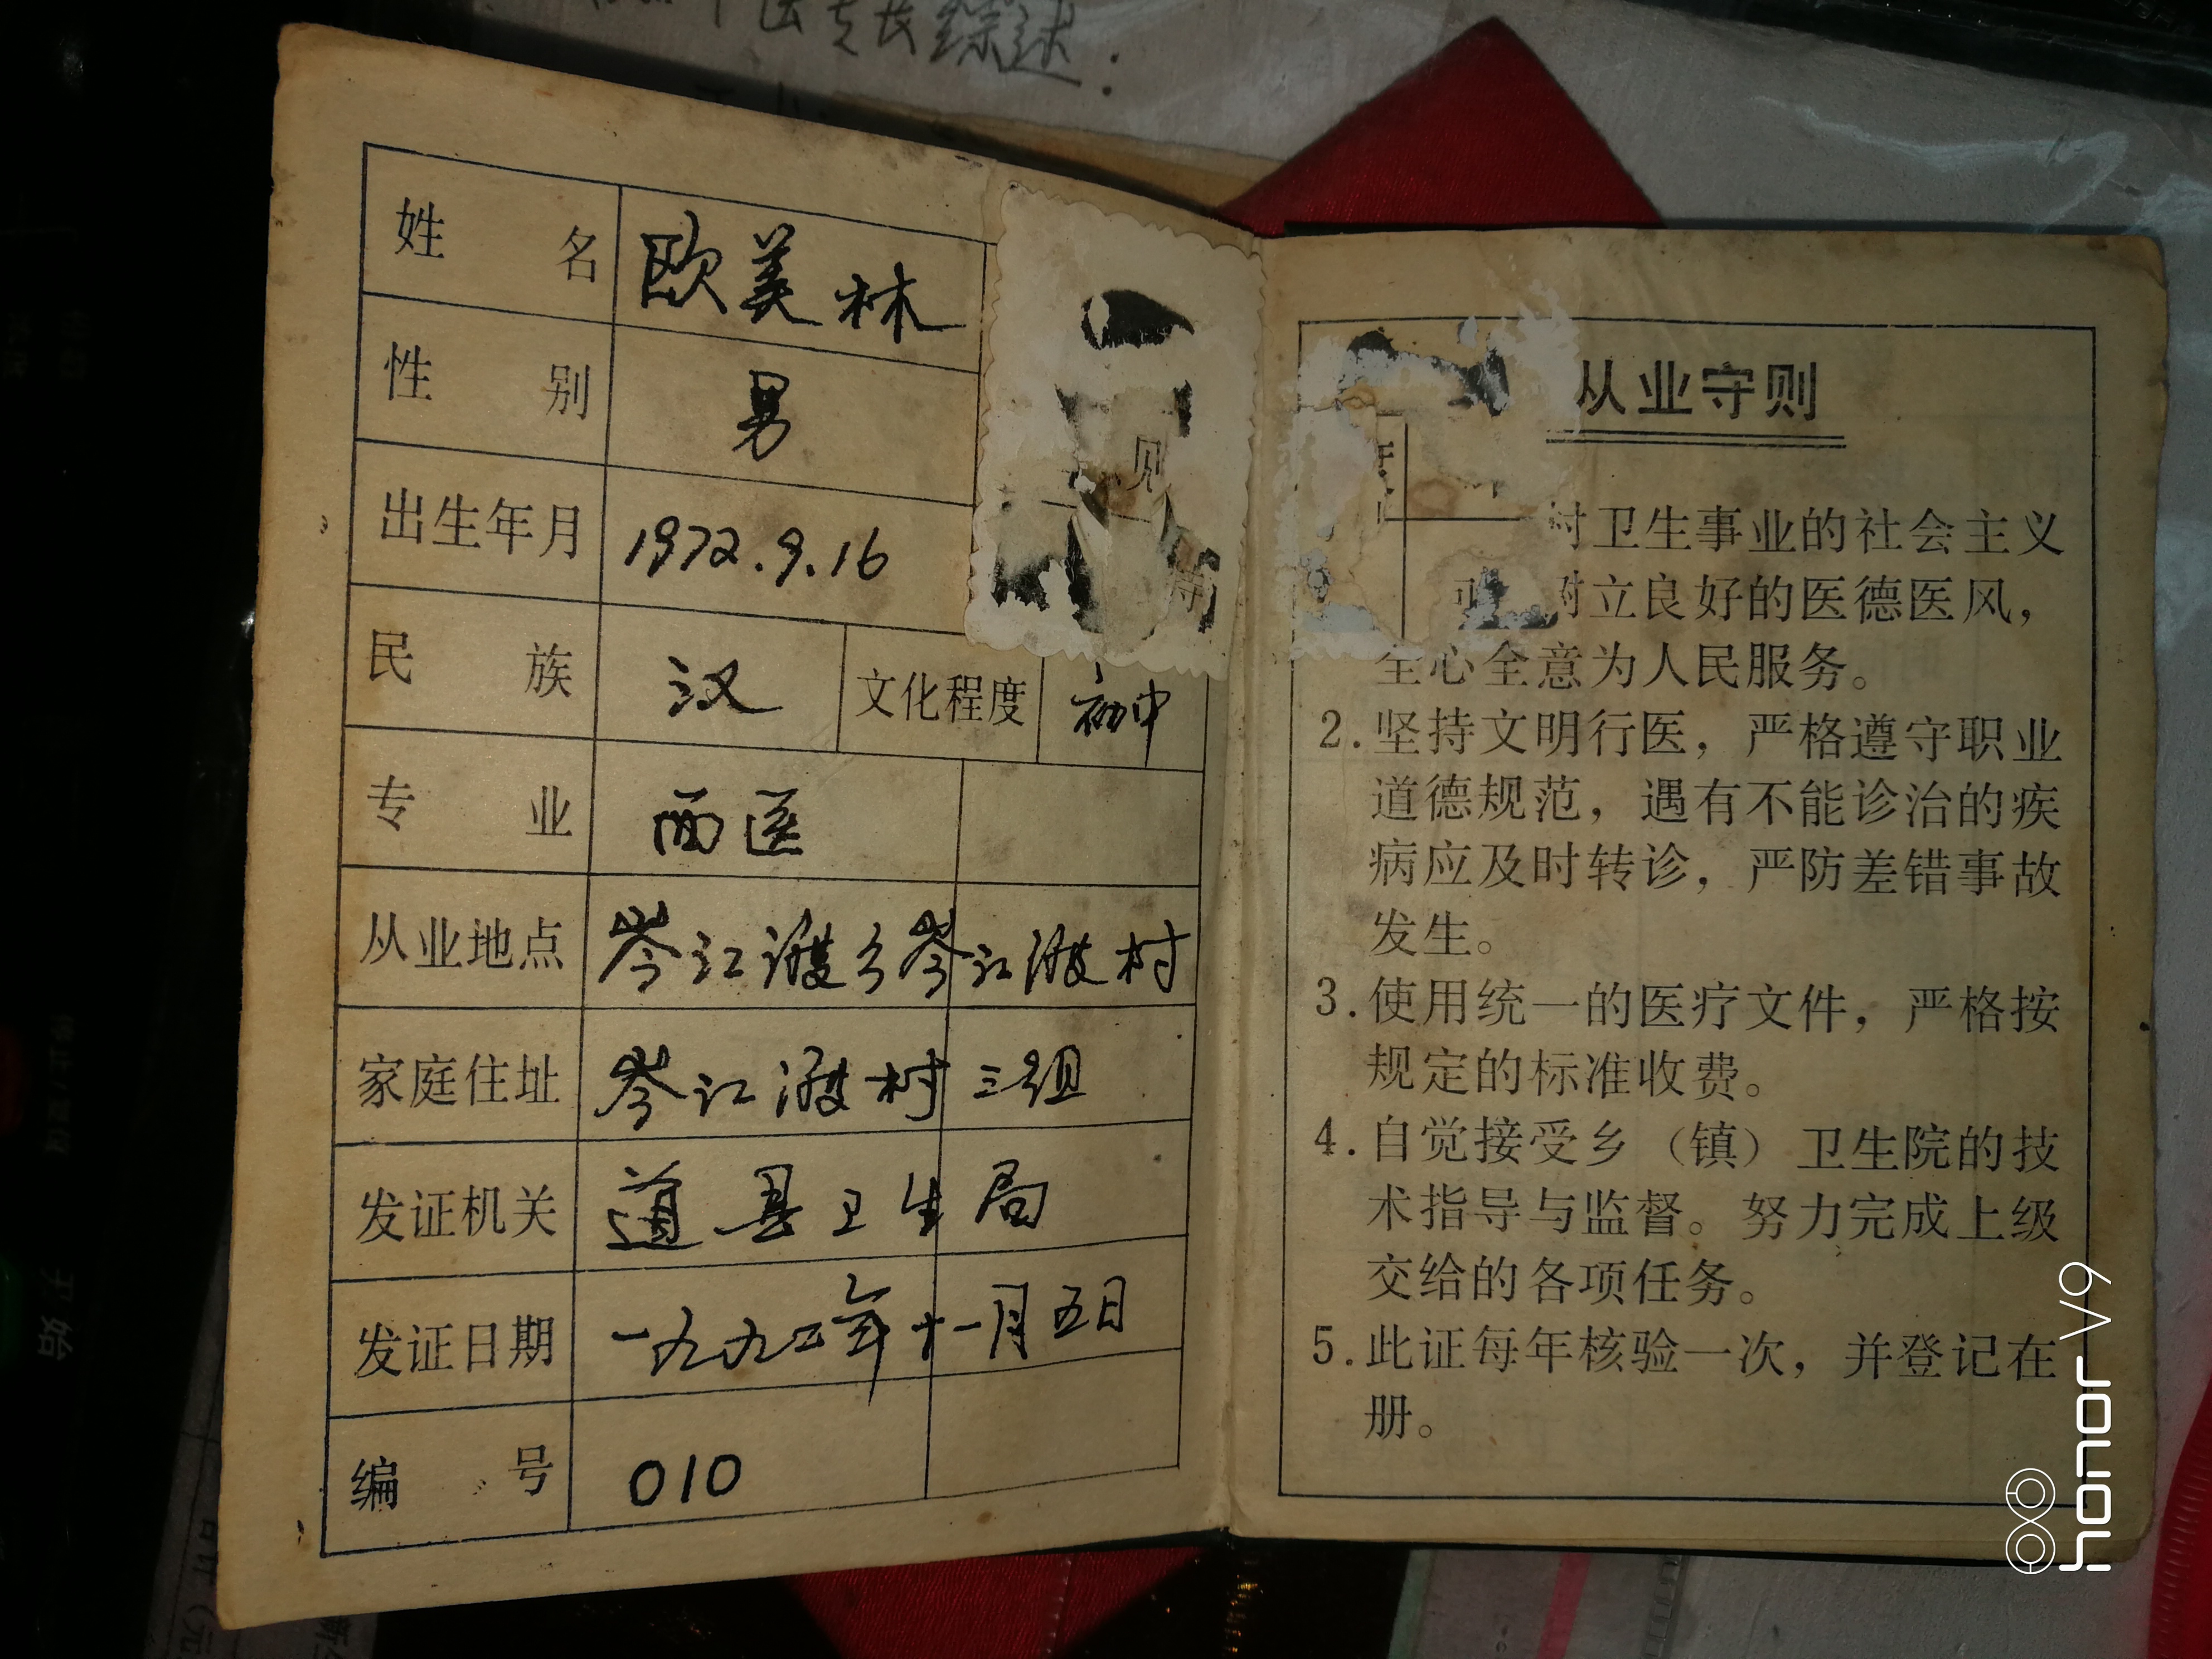 综述：
姓 名 欧美林
性 别 男
出生年月 1972.9.16
民 族 汉 文化程度 初中
专 业 西医
从业地点 岑江渡乡岑江渡村
家庭住址 岑江渡村三组
发证机关 道县卫生局
发证日期 一九九二年十一月五日
编 号 010
则
从业守则
村卫生事业的社会主义
树立良好的医德医风，
全心全意为人民服务。
2.坚持文明行医，严格遵守职业
道德规范，遇有不能诊治的疾
病应及时转诊，严防差错事故
发生。
3.使用统一的医疗文件，严格按
规定的标准收费。
4.自觉接受乡（镇）卫生院的技
术指导与监督。努力完成上级
交给的各项任务。
5.此证每年核验一次，并登记在
册。
honor V9
开始